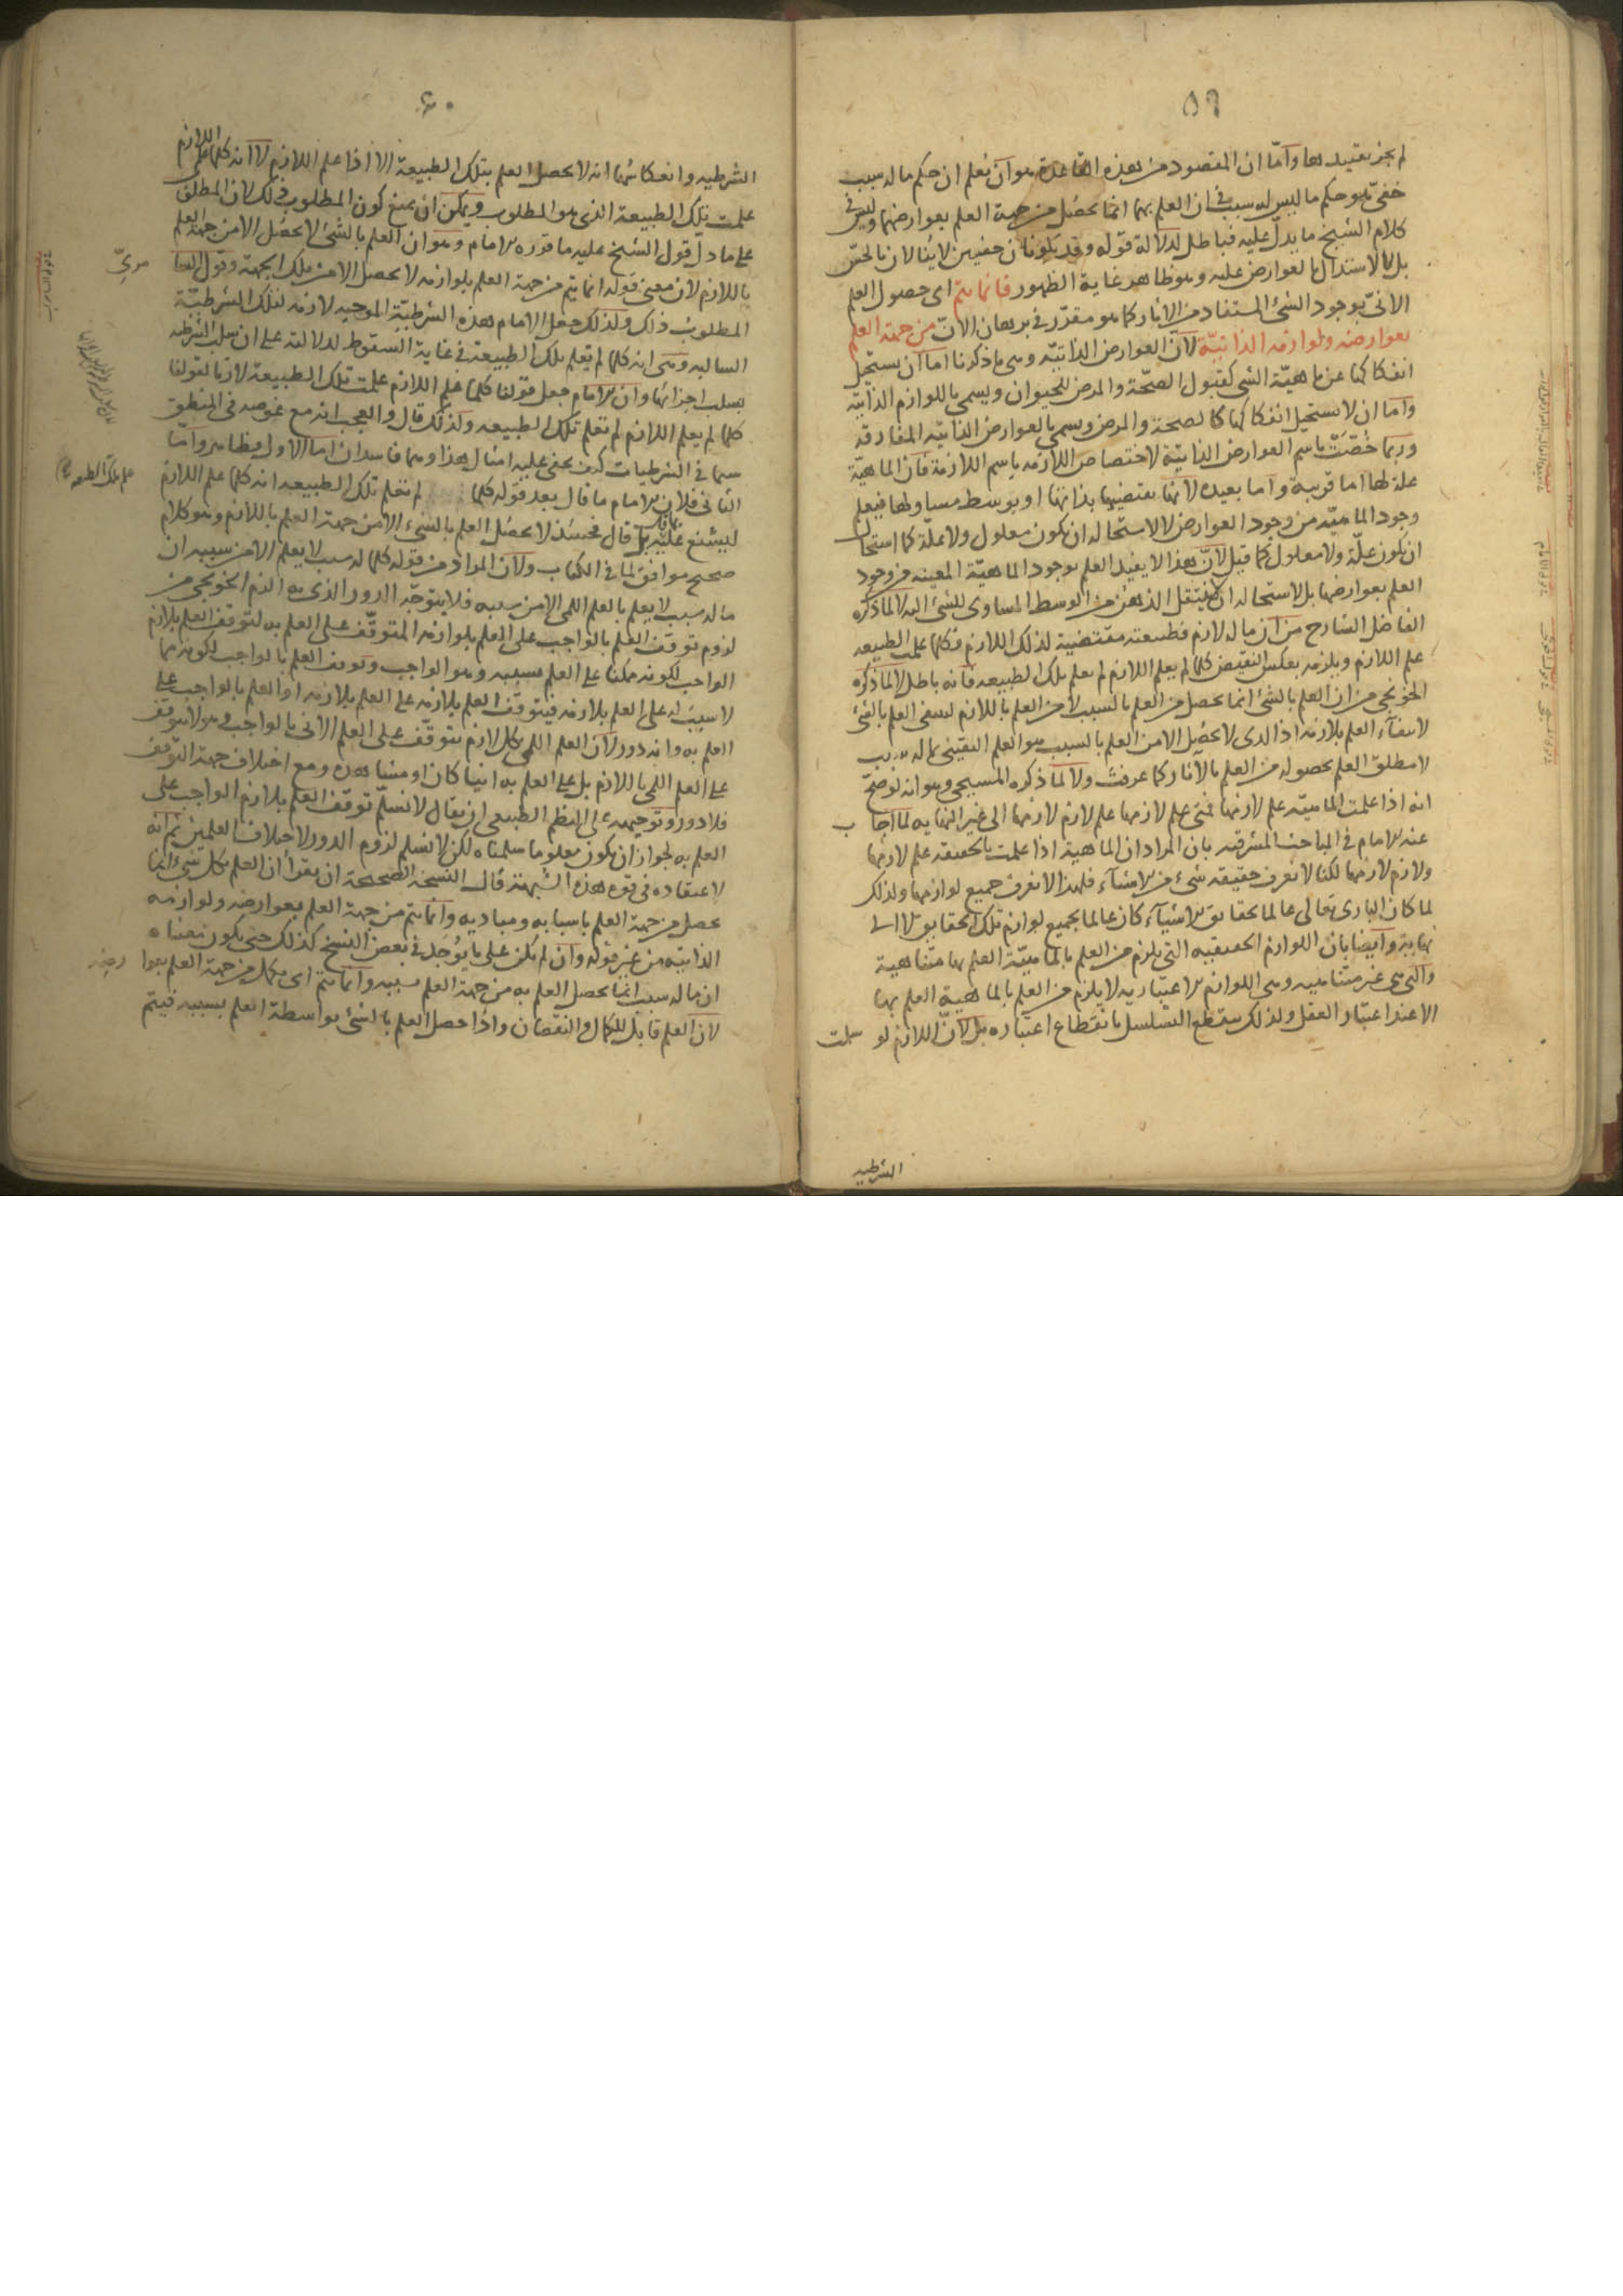 ٥٩
لم يجز تقييد لها واما ان المقصود من هذه القاعدة هو ان نعلم ان حكم ما له سبب
خفى هو حكم ما ليس له سبب فى ان العلم بهما انما يحصل من جهة العلم بعوارضهما وليس فى
كلام الشيخ ما يدل عليه فباطل لدلالة قوله وقد يكونان خفيين لا ينالان بالحس
بل بالاستدلال بالعوارض عليه وهو ظاهر غاية الظهور فانما يتم اى حصول العلم
الانى بوجود الشى المستفاد من الآثار كما هو مقرر فى برهان الان من جهة العلم
بعوارضه ولوازمه الذاتية لان العوارض الذاتية وهى ما ذكرنا اما ان يستحيل
انفكاكها عن ماهية الشى كقبول الصحة والمرض للحيوان ويسمى باللوازم الذاتية
واما ان لا يستحيل انفكاكها كالصحة والمرض ويسمى بالعوارض الذاتية المفارقة
وربما خصت باسم العوارض الذاتية لاختصاص اللازمه باسم اللازمة فان الماهية
علة لها اما قريبة واما بعيده لانها تقتضيها بذاتها او بوسط مساو لها فيعلم
وجود الماهية من وجود العوارض لا لاستحاله ان يكون معلول ولا علة كما استحال
ان يكون علة ولا معلول كما قيل لان هذا لا يفيد العلم بوجود الماهية المعينه من وجود
العلم بعوارضها بل لاستحاله ان لا ينتقل الذهن من الوسط المساوى للشئ اليه لا لما ذكره
الفاضل الشارح من ان ما له لازم فطبيعته مقتضية لذلك اللازم فكلما علمت الطبيعه
علم اللازم ويلزمه بعكس النقيض كلما لم يعلم اللازم لم تعلم تلك الطبيعه فانه باطل لا لما ذكره
الخونجى من ان العلم بالشئ انما يحصل من العلم بالسبب لا من العلم باللازم لينتفى العلم بالشئ
لانتفاء العلم بلازمه اذ الذى لا يحصل الا من العلم بالسبب هو العلم اليقينى بما له سبب
لا مطلق العلم لحصوله من العلم بالآثار كما عرفت ولا لما ذكره المسيحى وهو انه لو صح
انه اذا علمت الماهية علم لازمها فمتى علم لازمها علم لازم لازمها الى غير النهايه لما اجاب
عنه الامام فى المباحث المشرقيه بان المراد ان الماهية اذا علمت بالحقيقه علم لازمها
ولازم لازمها لكنا لا نعرف حقيقه شئ من الاشياء فلهذا لا نعرف جميع لوازمها ولذلك
لما كان البارى تعالى عالما بحقائق الاشياء كان عالما بجميع لوازم تلك الحقايق لا الى
نهاية وايضا بان اللوازم الحقيقيه التى يلزم من العلم بالماهية العلم بها متناهية
والتى هى غير متناهيه وهى اللوازم الاعتباريه لا يلزم من العلم بالماهية العلم بها
الا عند اعتبار العقل ولذلك ينقطع التسلسل بانقطاع اعتباره بل لان اللازم لو سلمت
الشرطيه
٦٠
الشرطيه وانعكاسها انه لا يحصل العلم بتلك الطبيعة الا اذا علم اللازم لا انه كلما علم اللازم
علمت تلك الطبيعة الذى هو المطلوب ويمكن ان يمنع كون المطلوب ذلك لان المطلوب
على ما دل قول الشيخ عليه ما قرره الامام وهو ان العلم بالشئ لا يحصل الا من جهة العلم
باللازم لان معنى قوله انما يتم من جهة العلم بلوازمه لا يحصل الا من تلك الجهة وقول
المطلوب ذلك ولذلك جعل الامام هذه الشرطية الموجبه لازمه لتلك الشرطية
السالبه وهى انه كلما لم تعلم تلك الطبيعة فى غاية السقوط لدلالته على ان سلب الشرطيه
بسلب اجزائها وان الامام جعل قولنا كلما علم اللازم علمت تلك الطبيعة لازما لقولنا
كلما لم يعلم اللازم لم تعلم تلك الطبيعه ولذلك قال والعجب انه مع غوصه فى المنطق
سيما فى الشرطيات كيف يخفى عليه امثال هذا وهما فاسدان اما الاول فظاهر واما
الثانى فلان الامام ما قال بعد قوله كلما لم تعلم تلك الطبيعه انه كلما علم اللازم
ليشنع عليه بل قال فحينئذ لا يحصل العلم بالشئ الا من جهة العلم باللازم وهو كلام
صحيح موافق لما فى الكتاب ولان المراد من قوله كلما له سبب لا يعلم الا من سببه ان
ما له سبب لا يعلم بالعلم اللمى الا من سببه فلا يتوجه الدور الذى الزم الخونجى من
لزوم توقف العلم بالواجب على العلم بلوازمه المتوقف على العلم به لتوقف العلم بلازم
الواجب لكونه ممكنا على العلم بسببه وهو الواجب وتوقف العلم بالواجب لكونه مما
لا سبب له على العلم بلازمه فيتوقف العلم بلازمه على العلم بلازمه او العلم بالواجب على
العلم به وانه دور لان العلم اللمى بكل لازم يتوقف على العلم الانى بالواجب وهو لا يتوقف
على العلم اللمى باللازم بل على العلم به انيا كان او مشاهده ومع اختلاف جهة التوقف
فلا دور وتوجيهه على النظم الطبيعى ان يقال لا نسلم توقف العلم بلازم الواجب على
العلم به لجواز ان يكون معلوما سلمناه لكن لا نسلم لزوم الدور لاختلاف العلمين ثم انه
لاعتقاده فى قوه هذه الشبهة قال النسخة الصحيحة ان يقرأ ان العلم بكل شئ انما
يحصل من جهة العلم باسبابه ومباديه وانما يتم من جهة العلم بعوارضه ولوازمه
الذاتيه من غير قوله وان لم يكن على ما يوجد فى بعض النسخ كذلك حتى يكون معناه
ان ما له سبب انما يحصل العلم به من جهة العلم بسببه وانما يتم اى يكمل من جهة العلم بعوارضه
لان العلم قابل للكمال والنقصان واذا حصل العلم بالشئ بواسطة العلم بسببه فيتم
علم تلك الطبيعه